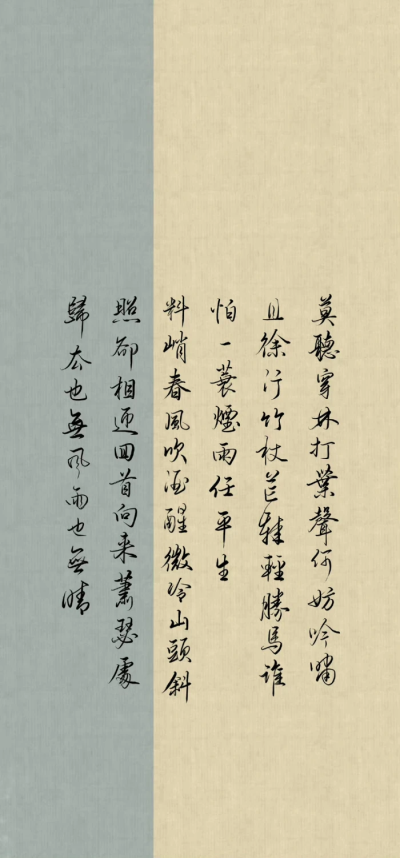 莫聽穿林打葉聲何妨吟嘯
且徐行竹杖芒鞋輕勝馬誰
怕一蓑煙雨任平生
料峭春風吹酒醒微冷山頭斜
照卻相迎回首向来蕭瑟處
歸去也無風雨也無晴